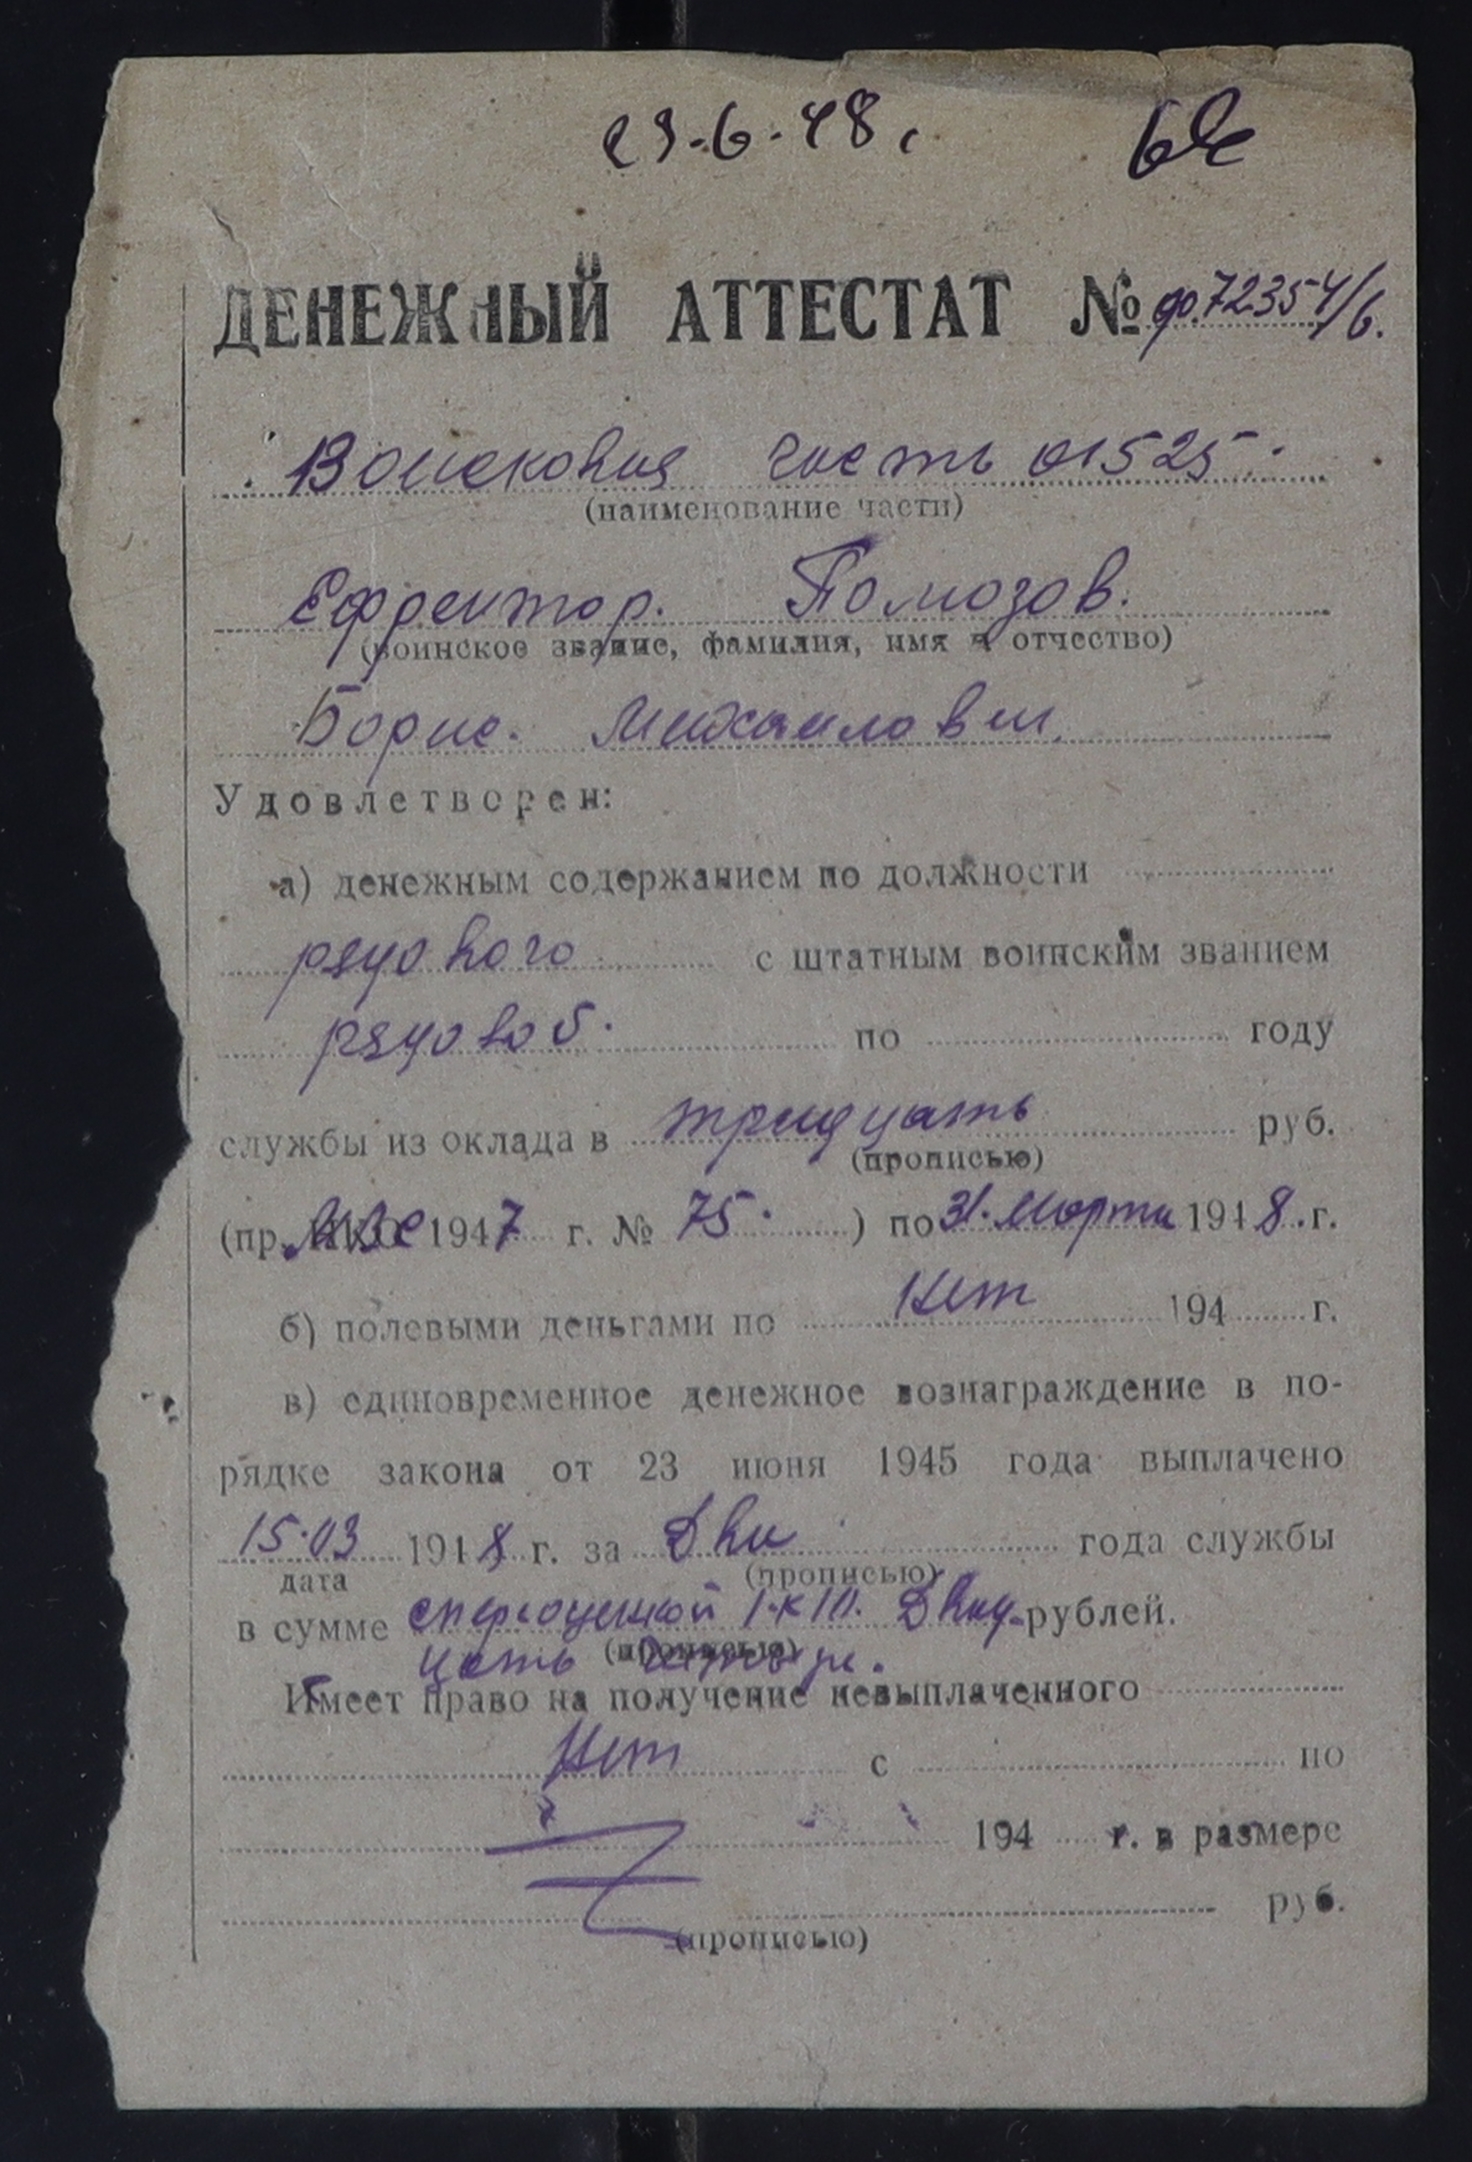 29.6.48 г.
ДЕНЕЖНЫЙ АТТЕСТАТ № ф.72354/6.
Воисковая часть 01525.
(наименование части)
Ефрейтор. Помозов.
(воинское звание, фамилия, имя и отчество)
Борис. Михаилович.
Удовлетворен:
а) денежным содержанием по должности
рядового с штатным воинским званием
рядовой. по году
службы из оклада в тридцать руб.
(прописью)
(пр. МВС 1947 г. № 75. ) по 31. Марта 1948. г.
б) полевыми деньгами по Нет 194 г.
в) единовременное денежное вознаграждение в по-
рядке закона от 23 июня 1945 года выплачено
15.03 1948 г. за Два года службы
дата (прописью)
в сумме с переоценкой 1 к 10. Двад- рублей.
цать четыре. (прописью)
Имеет право на получение невыплаченного
Нет с по
194 г. в размере
руб.
(прописью)